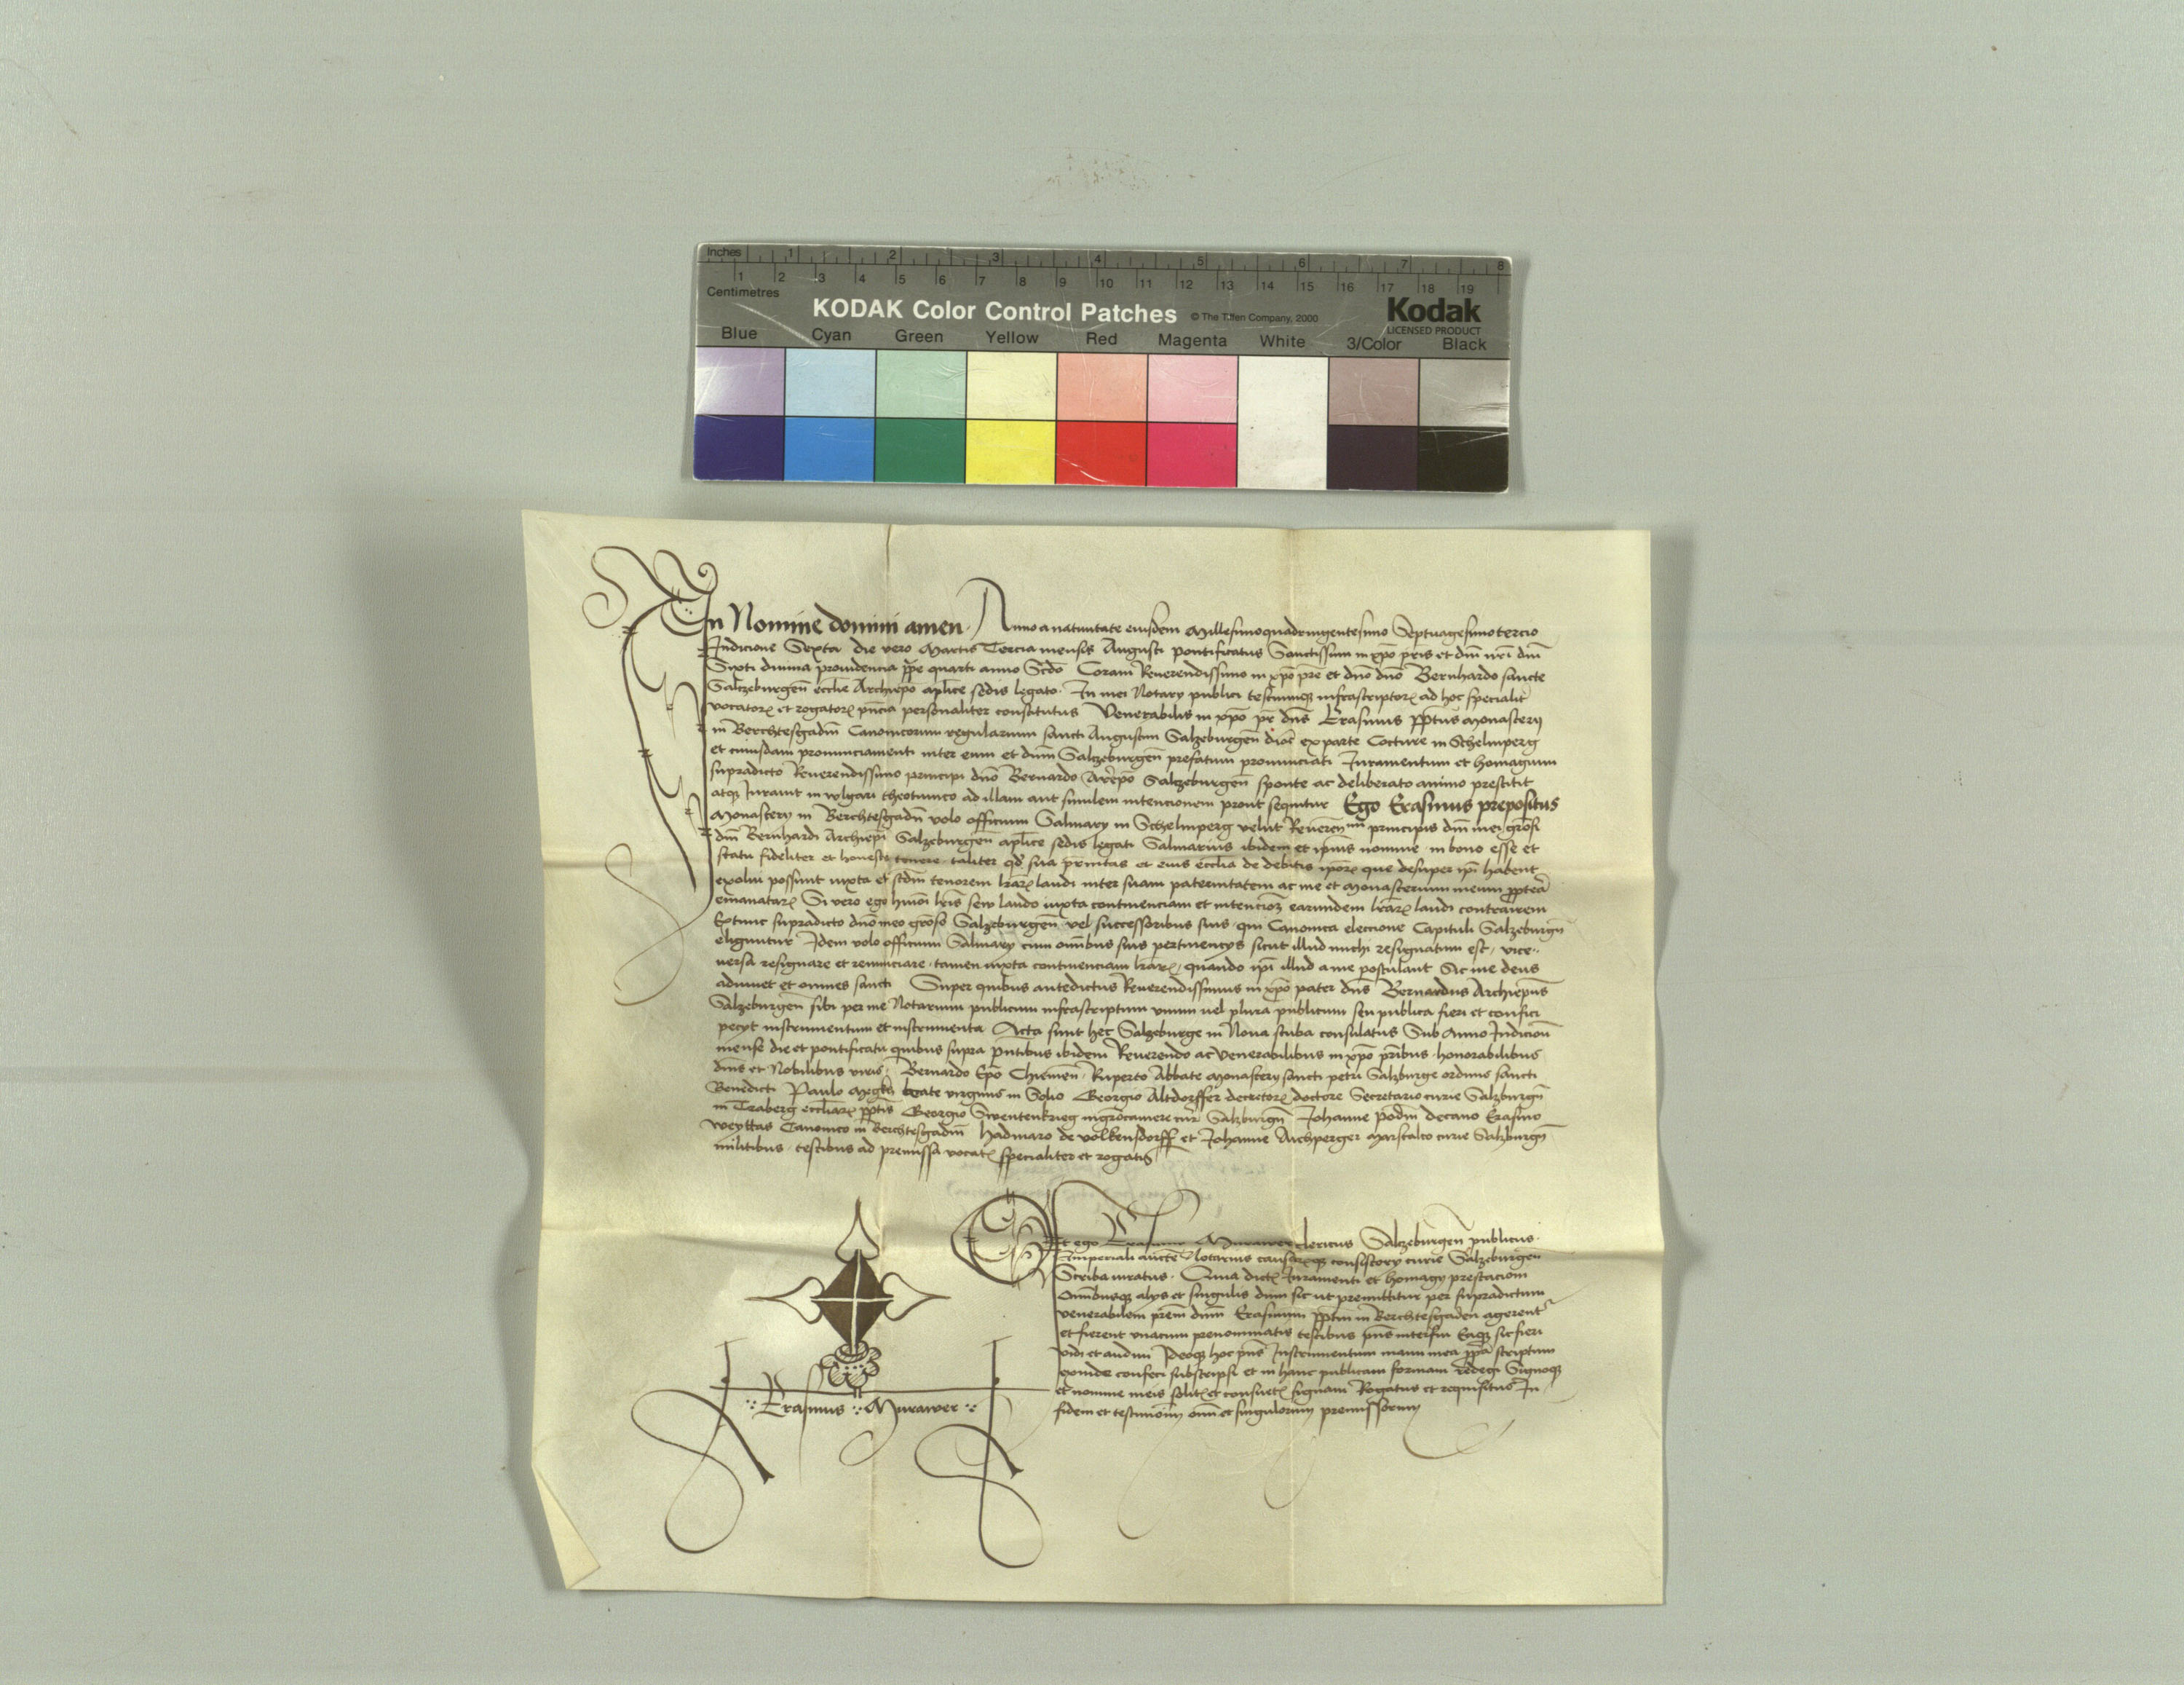 Inches 1 2 3 4 5 6 7 8
1 2 3 4 5 6 7 8 9 10 11 12 13 14 15 16 17 18 19
Centimetres
KODAK Color Control Patches © The Tiffen Company, 2000 Kodak
LICENSED PRODUCT
Blue Cyan Green Yellow Red Magenta White 3/Color Black
In Nomine domini amen. Anno a natiuitate eiusdem Millesimoquadringentesimo Septuagesimotercio
Indicione Sexta die vero Martis Tercia mensis Augusti pontificatus Sanctissimi in xpo pris et dni nri dni
Sixti diuina prouidencia ppe quarti anno Scdo Coram Reuerendissimo in xpo pre et dno dno Bernhardo sancte
Salczeburgen ecclie Archiepo aplice sedis legato. In mei Notarij publici testiumq infrascriptor ad hoc specialit
vocator et rogator pncia personaliter constitutus Venerabilis in xpo pr dns Erasmus pptus Monasterij
in Berchtesgadm Canonicorum regularium sancti Augustini Salczeburgen dioc ex parte Cocture in Schelmperg
et cuiusdam pronunciamenti inter eum et dnm Salczeburgen prefatum pronunciati Iuramentum et homagium
supradicto Reuerendissimo principi dno Bernardo Arepo Salczeburgen sponte ac deliberato animo prestitit
atq Iurauit in vulgari theotunico ad illam aut similem intencionem prout sequitur Ego Erasmus prepositus
Monasterij in Berchtesgadn volo officium Salinarij in Schelmperg velut Reueren principis dni mei grosi
dni Bernhardi Archiepi Salczeburgen aplice sedis legati Salinarius ibidem et ipius nomine in bono esse et
statu fideliter et honeste tenere taliter qd sua prnitas et eius ecclia de debitis ipor que desuper ipi habent
exolui possunt iuxta et scdm tenorem lrar laudi inter suam paternitatem ac me et Monasterium meum pptea
emanatar Si vero ego hmoi lris sew laudo iuxta continenciam et intencioz earundem lrar laudi contrairem
Extunc supradicto dno meo groso Salczeburgen vel successoribus suis qui Canonica eleccione Capituli Salczeburgn
eliguntur Idem volo officium Salinarij cum omibus suis pertinencijs sicut illud michi resignatum est, vice
uersa resignare et renunciare tamen iuxta continenciam lrar, quando ipi illud a me postulant Sic me deus
adiuuet et omnes sancti Super quibus antedictus Reuerendissimus in xpo pater dns Bernardus Archiepus
Salczeburgen sibi per me Notarium publicum infrascriptum vnum uel plura publicum seu publica fieri et confici
pecijt instrumentum et instrumenta Acta sunt hec Salczeburge in Noua stuba consulatus Sub Anno Indicion
mense die et pontificatu quibus supra pntibus ibidem Reuerendo ac Venerabilibus in xpo pribus honorabilibus
dnis et Nobilibus viris. Bernardo Epo Chiemen. Ruperto Abbate Monasterij sancti petri Salczburge ordinis sancti
Benedicti Paulo beate virginis in Solio Georgio Altdorffer decretor doctore Secretario curie Salczburgn
in Traberg eccliar pptis Georgio Swentenkrieg mgro camere cur Salczburgn Johanne decano Erasmo
Canonico in Berchtesgadm Hadmaro de Volkensdorff et Johanne Aichperger Marscalco curie Salczburgn
militibus. testibus ad premissa vocat specialiter et rogatis
Et ego Erasmus Murawer clericus Salczeburgen publicus
Imperiali aucte Notarius causarq consistorij curie Salczeburgen
Scriba iuratus. Quia dict Iuramenti et homagij prestacion
Omibusq alijs et singulis dum sic ut premittitur per supradictum
venerabilem prem dnm Erasmum pptm in Berchtesgaden agerent
et fierent vnacum prenominatis testibus pns interfui Eaq sic fieri
vidi et audiui Ideoq hoc pns Instrumentum manu mea ppa scriptum
exinde confeci subscripsi et in hanc publicam formam redegi Signoq
et nomine meis solit et consuet signaui Rogatus et requisitus In
fidem et testimoiu oim et singulorum premissorum
Erasmus Murawer